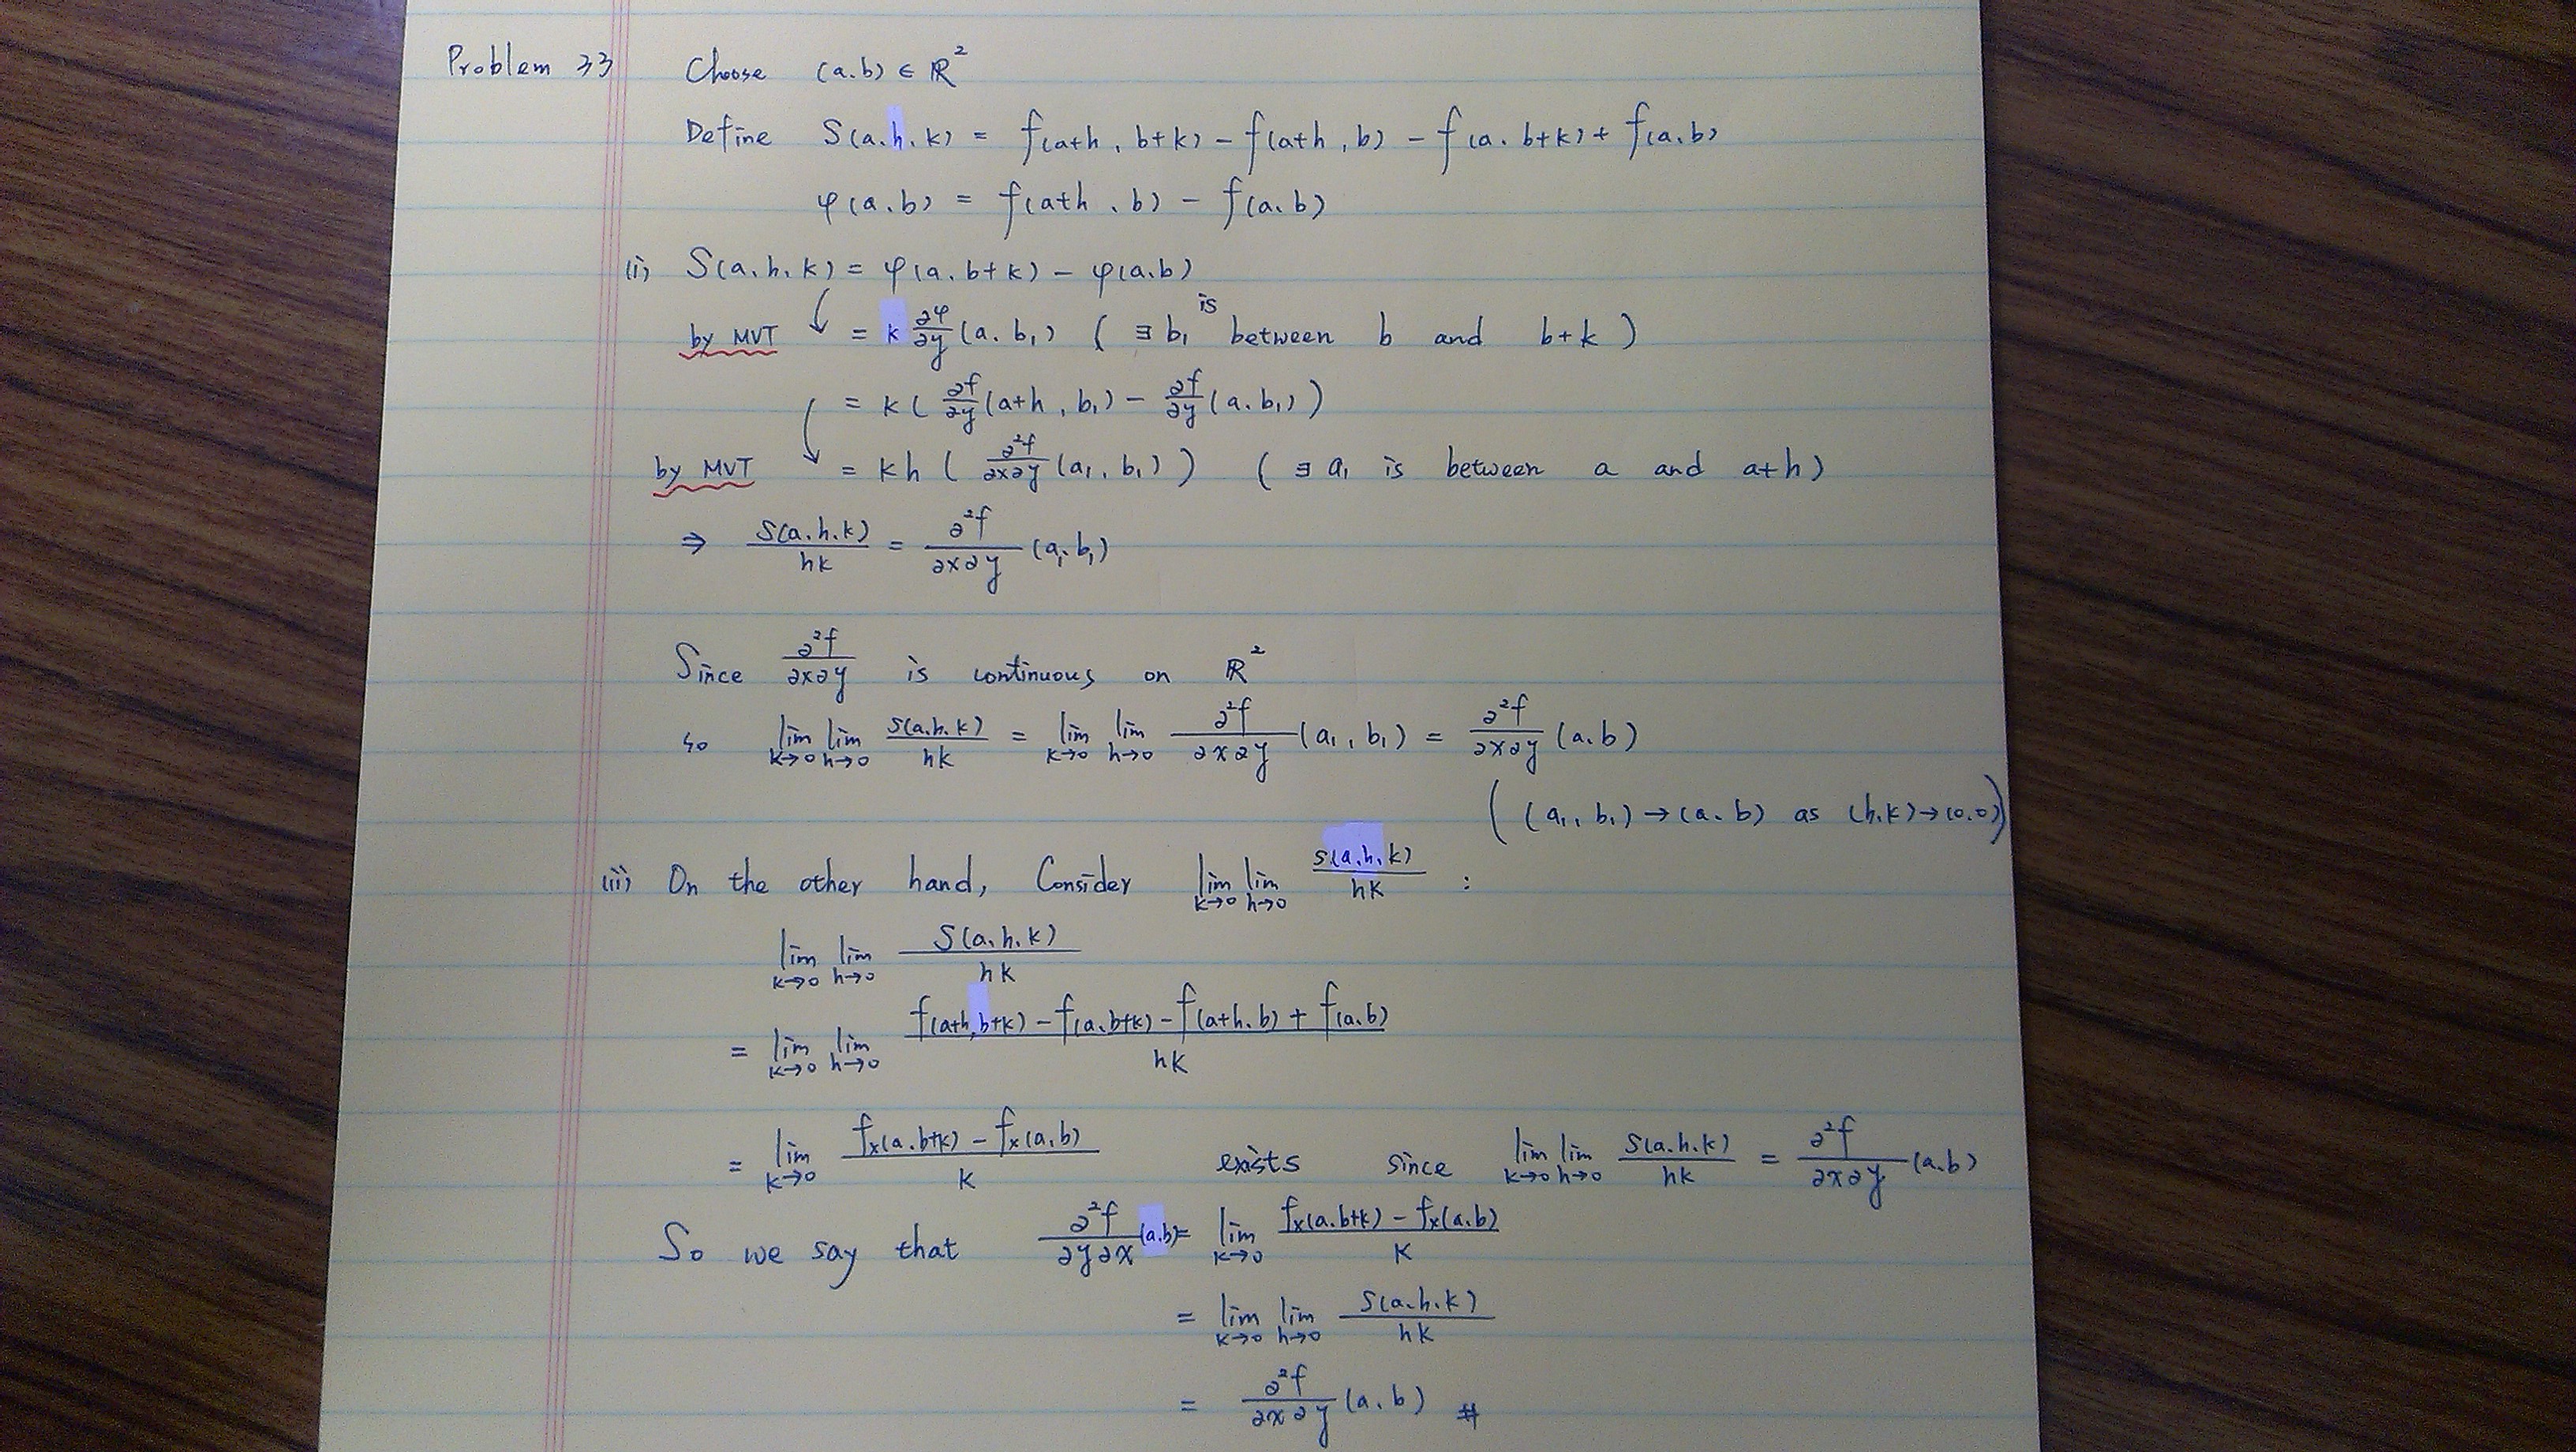 Problem 33 Choose (a.b) ∈ ℝ²
Define S(a.h.k) = f(a+h, b+k) - f(a+h, b) - f(a. b+k) + f(a.b)
φ(a.b) = f(a+h . b) - f(a.b)
(i) S(a.h.k) = φ(a.b+k) - φ(a.b)
by MVT = k ∂φ/∂y (a. b₁) ( ∃ b₁ is between b and b+k )
= k ( ∂f/∂y (a+h, b₁) - ∂f/∂y (a. b₁) )
by MVT = kh ( ∂²f/∂x∂y (a₁, b₁) ) ( ∃ a₁ is between a and a+h )
⇒ S(a.h.k)/hk = ∂²f/∂x∂y (a₁. b₁)
Since ∂²f/∂x∂y is continuous on ℝ²
so lim k→0 lim h→0 S(a.h.k)/hk = lim k→0 lim h→0 ∂²f/∂x∂y (a₁, b₁) = ∂²f/∂x∂y (a.b)
( (a₁, b₁) → (a.b) as (h.k) → (0.0) )
(ii) On the other hand, Consider lim k→0 lim h→0 S(a.h.k)/hk :
lim k→0 lim h→0 S(a.h.k)/hk
= lim k→0 lim h→0 f(a+h, b+k) - f(a.b+k) - f(a+h.b) + f(a.b)/hk
= lim k→0 fx(a.b+k) - fx(a.b)/k exists since lim k→0 lim h→0 S(a.h.k)/hk = ∂²f/∂x∂y (a.b)
So we say that ∂²f/∂y∂x (a.b) = lim k→0 fx(a.b+k) - fx(a.b)/k
= lim k→0 lim h→0 S(a.h.k)/hk
= ∂²f/∂x∂y (a.b) #